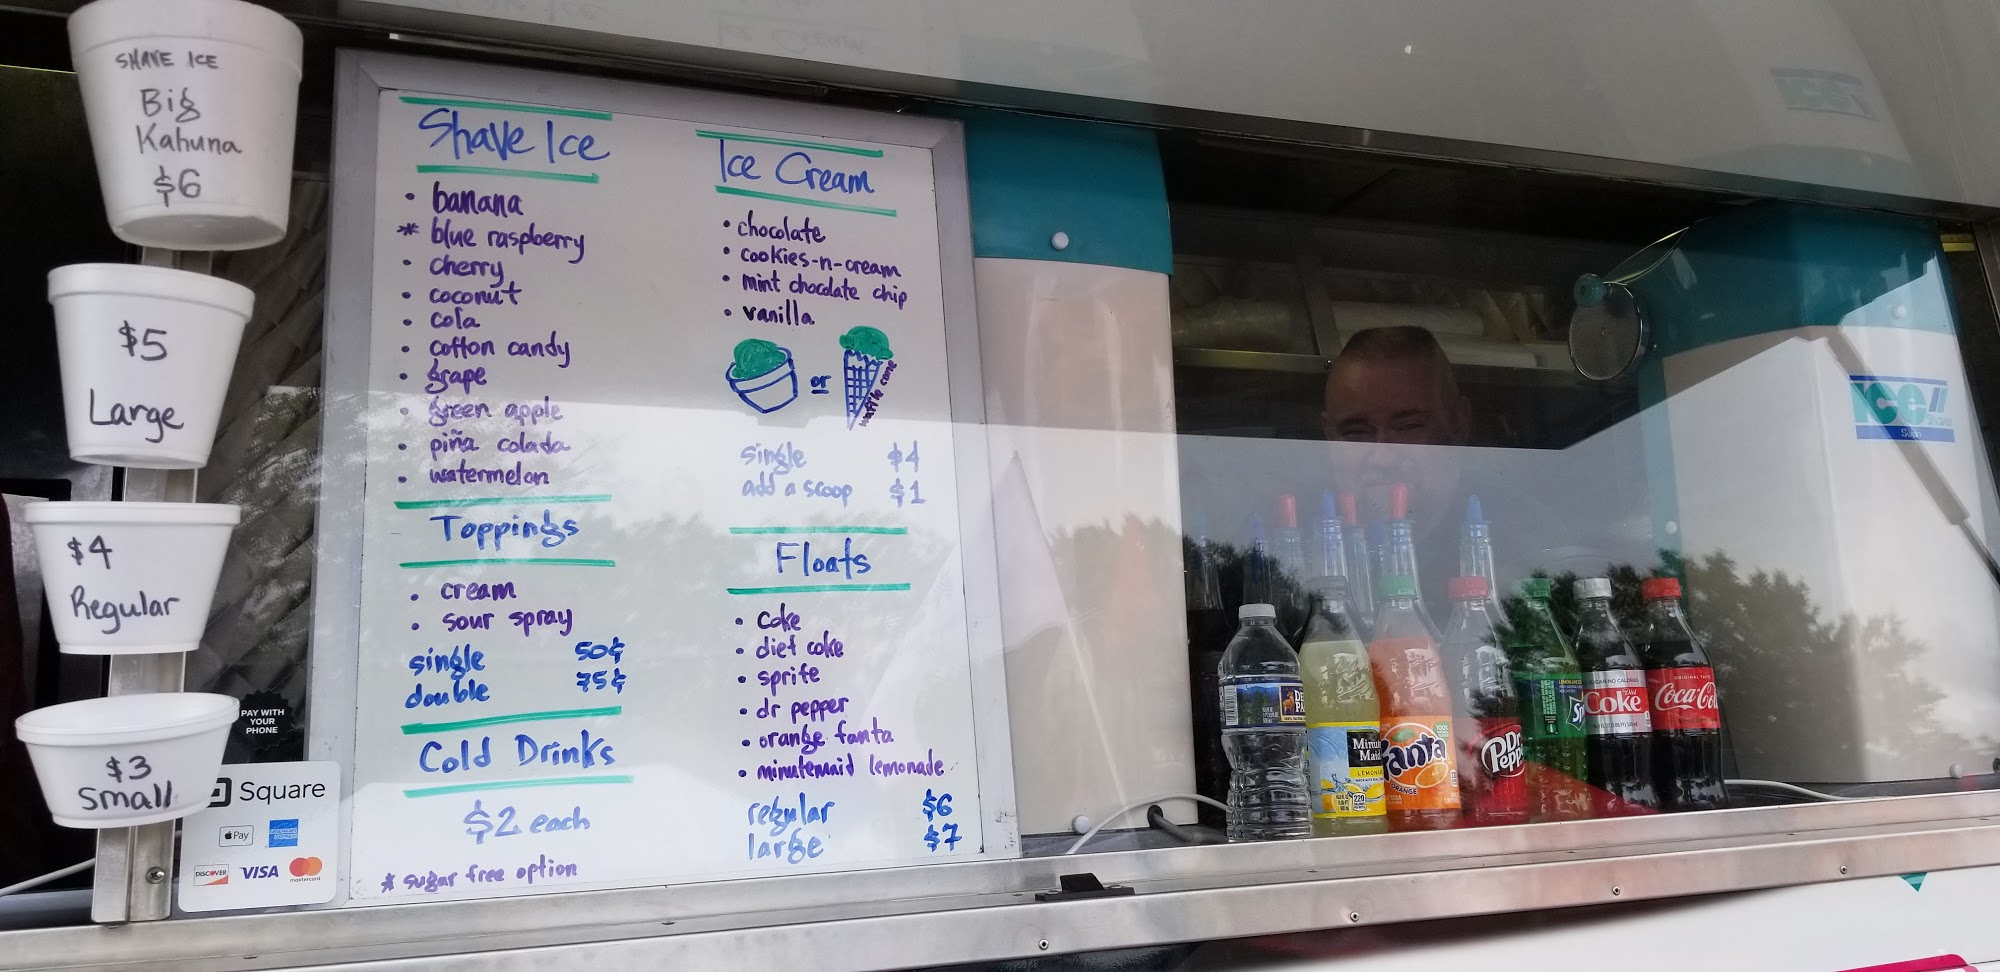 SHAVE ICE
Big
Kahuna
$6
$5
Large
$4
Regular
$3
Small
PAY WITH
YOUR
PHONE
Square
Pay
DISCOVER
VISA
mastercard
Shave Ice
• banana
* blue raspberry
• cherry
• coconut
• cola
• cotton candy
• grape
• green apple
• piña colada
• watermelon
Toppings
• cream
• sour spray
single 50¢
double 75¢
Cold Drinks
$2 each
* sugar free option
Ice Cream
• chocolate
• cookies-n-cream
• mint chocolate chip
• vanilla
or
waffle cone
single $4
add a scoop $1
Floats
• coke
• diet coke
• sprite
• dr pepper
• orange fanta
• minutemaid lemonade
regular $6
large $7
Minute
Maid
Fanta
ORANGE
Dr
Pepper
Diet
Coke
ORIGINAL TASTE
Coca-Cola
ICE